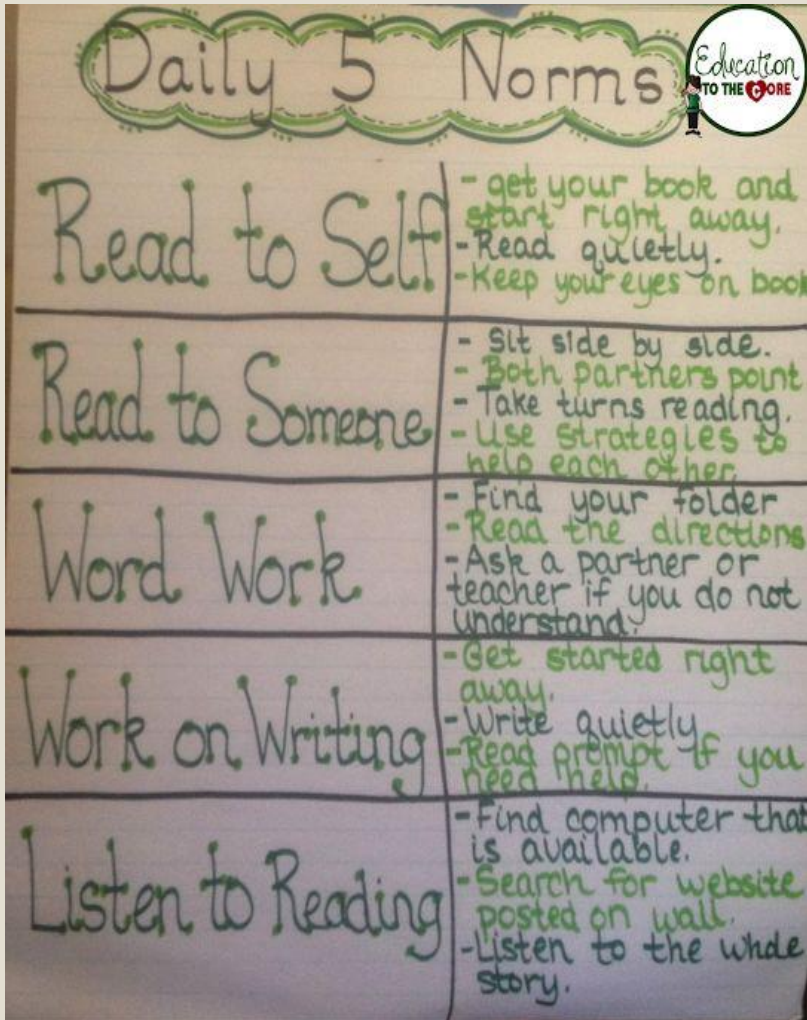 Daily 5 Norms
Education
TO THE CORE
Read to Self
- get your book and
start right away.
- Read quietly.
- Keep your eyes on book
Read to Someone
- Sit side by side.
- Both partners point
- Take turns reading.
- Use strategies to
help each other.
Word Work
- Find your folder
- Read the directions
- Ask a partner or
teacher if you do not
understand.
Work on Writing
- Get started right
away.
- Write quietly
- Read prompt if you
need help.
Listen to Reading
- Find computer that
is available.
- Search for website
posted on wall.
- Listen to the whole
story.